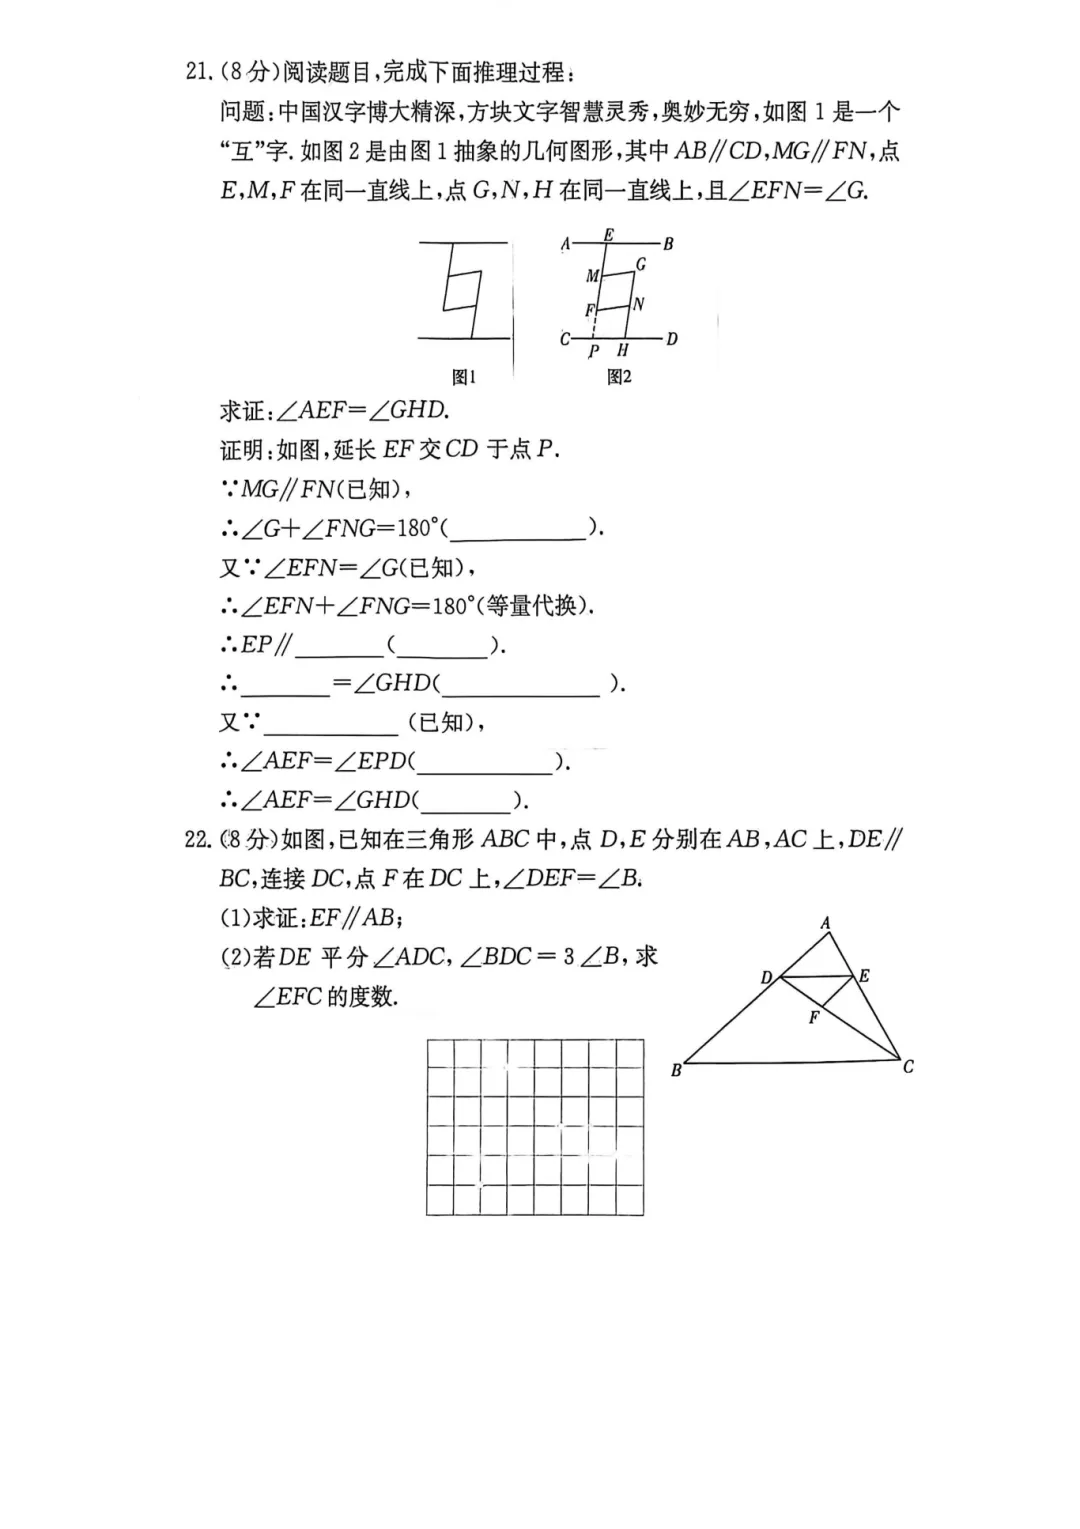 21.(8分)阅读题目,完成下面推理过程:
问题:中国汉字博大精深,方块文字智慧灵秀,奥妙无穷,如图1是一个
“互”字.如图2是由图1抽象的几何图形,其中AB∥CD,MG∥FN,点
E,M,F在同一直线上,点G,N,H在同一直线上,且∠EFN=∠G.
A E B
M G
F N
C P H D
图1 图2
求证:∠AEF=∠GHD.
证明:如图,延长EF交CD于点P.
∵MG∥FN(已知),
∴∠G+∠FNG=180°(__________).
又∵∠EFN=∠G(已知),
∴∠EFN+∠FNG=180°(等量代换).
∴EP∥______(______).
∴______=∠GHD(__________).
又∵__________(已知),
∴∠AEF=∠EPD(__________).
∴∠AEF=∠GHD(______).
22.(8分)如图,已知在三角形ABC中,点D,E分别在AB,AC上,DE∥
BC,连接DC,点F在DC上,∠DEF=∠B.
(1)求证:EF∥AB;
(2)若DE平分∠ADC,∠BDC=3∠B,求
∠EFC的度数.
A
D E
F
B C